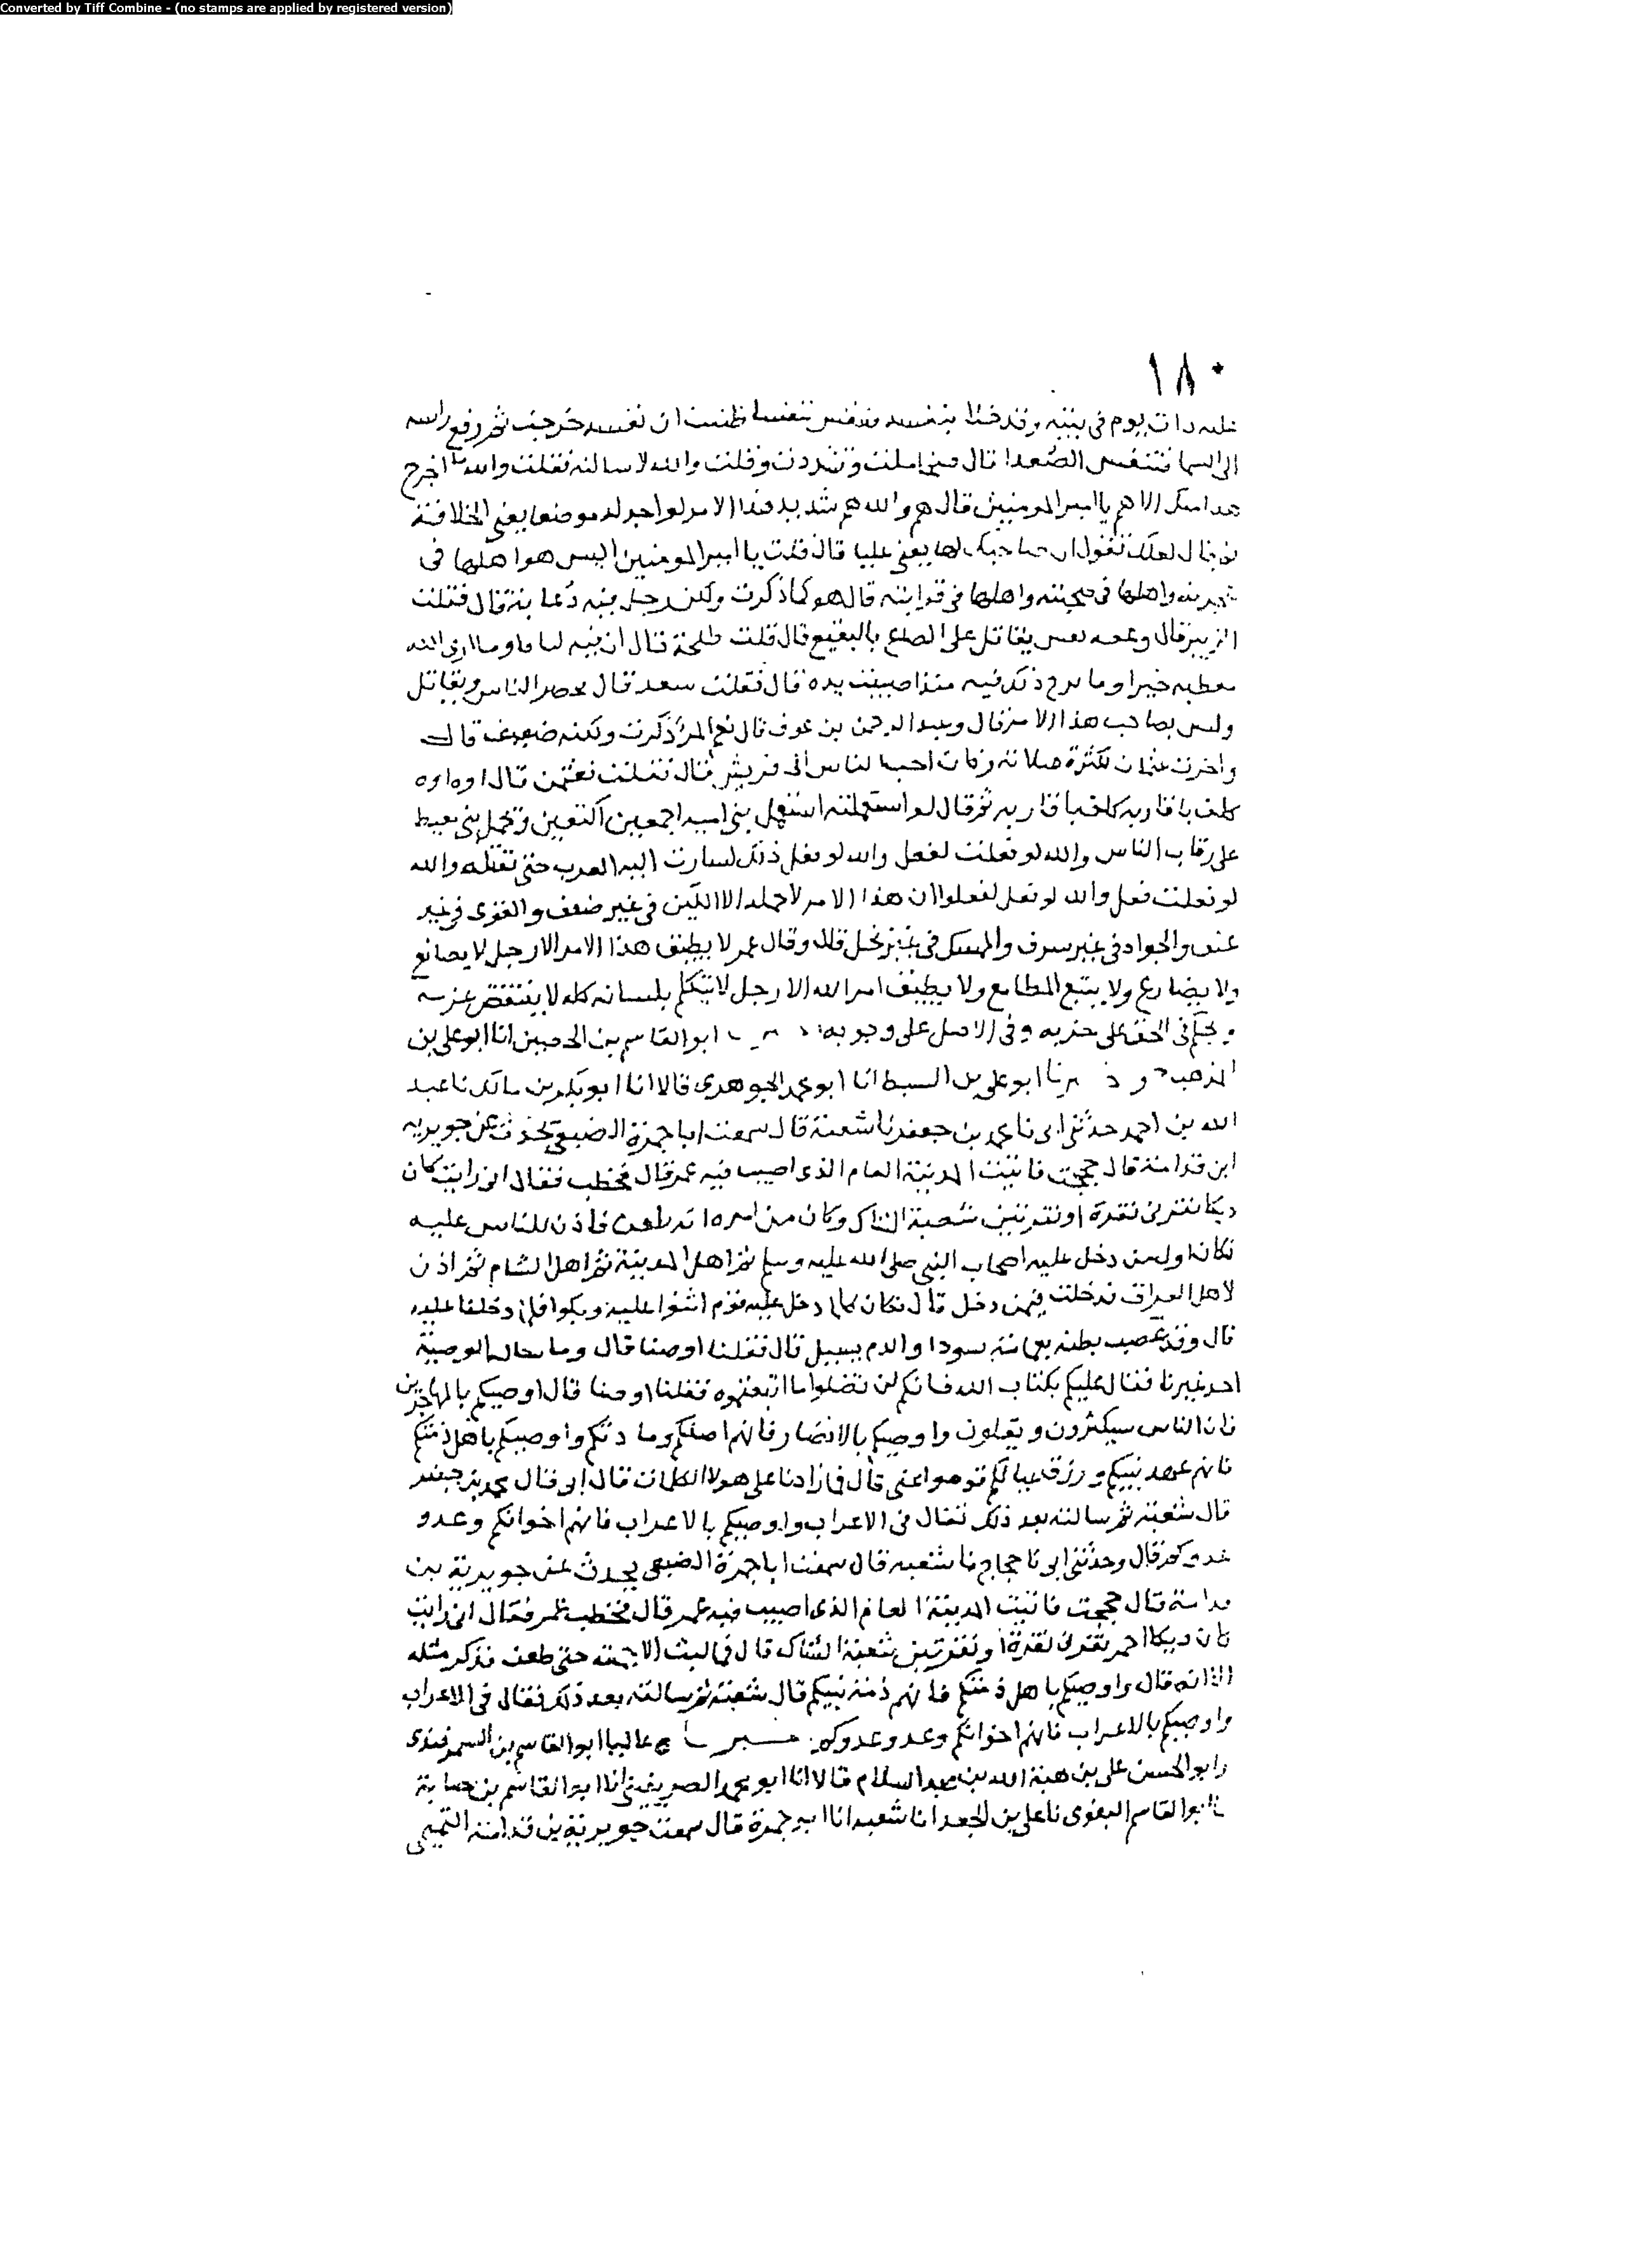 Converted by Tiff Combine - (no stamps are applied by registered version)
١٨٠
عليه ذات يوم في بيته وقد خلا بنفسه فتنفس تنفسا ظننت ان نفسه خرجت ثم رفع راسه
الى السما فتنفس الصعدا قال فتحاملت وتشددت وقلت والله لاسالنه فقلت والله ما اخرج
هذا منك الا هم يا امير المومنين قال هم والله هم شديد هذا الامر لو اجد له موضعا يعني الخلافة
ثم قال لعلك تقول ان صاحبك لها يعني عليا قال قلت يا امير المومنين اليس هو اهلها في
هجرته واهلها في صحبته واهلها في قرابته قال هو كما ذكرت ولكن رجل فيه دعابة قال فقلت
الزبير قال وعقه لقس يقاتل على الصاع بالبقيع قال قلت طلحة قال ان فيه لبا وا وما ارى الله
معطيه خيرا وما برح ذلك فيه منذ اصيبت يده قال فقلت سعد قال يحضر الناس ويقاتل
وليس بصاحب هذا الامر قال وعبد الرحمن بن عوف قال نعم المر ذكرت ولكنه ضعيف قال
واخرت عثمان لكثرة صلاته وكان احب الناس الى قريش قال فقلت فعثمن قال اوه اوه
كلف باقاربه كلف باقاربه ثم قال لو استعملته استعمل بني اميه اجمعين اكتعين ويحمل بني معيط
على رقاب الناس والله لو فعلت لفعل والله لو فعل ذلك لسارت اليه العرب حتى تقتله والله
لو فعلت فعل والله لو فعل لفعلوا ان هذا الامر لا يحمله الا اللين في غير ضعف والقوى في غير
عنف والجواد في غير سرف والممسك في غير بخل قال وقال عمر لا يطيق هذا الامر الا رجل لا يصانع
ولا يضارع ولا يتبع المطامع ولا يطيق امر الله الا رجل لا يتكلم بلسانه كله لا ينتقض عزمه
ويحكم في الحق على حزبه وفي الاصل على وجوبه ابو القاسم بن الحصين انا ابو علي بن
المذهب و نا ابو علي بن السبط انا ابو محمد الجوهري قالا انا ابو بكر بن مالك نا عبد
الله بن احمد حدثني ابي نا محمد بن جعفر نا شعبة قال سمعت ابا جمرة الضبعي يحدث عن جويريه
ابن قدامة قال حججت فاتيت المدينة العام الذي اصيب فيه عمر قال فخطب فقال اني رايت كان
ديكا نقرني نقرة او نقرتين شعبة الشاك وكان من امره انه طعن فاذن للناس عليه
فكان اول من دخل عليه اصحاب النبي صلى الله عليه وسلم ثم اهل المدينة ثم اهل الشام ثم اذن
لاهل العراق فدخلت فيمن دخل قال فكان كلما دخل عليه قوم اثنوا عليه وبكوا فلما دخلنا عليه
قال وقد عصب بطنه بعمامة سودا والدم يسيل قال فقلنا اوصنا قال وما سالنا الوصية
احد غيرنا فقال عليكم بكتاب الله فانكم لن تضلوا ما اتبعتموه فقلنا اوصنا قال اوصيكم بالمهاجرين
فان الناس سيكثرون ويقلون واوصيكم بالانصار فانهم اصلكم ومادتكم واوصيكم باهل ذمتكم
فانهم عهد نبيكم ورزق عيالكم قوموا عني قال فما زادنا على هولا الكلمات قال ابي قال محمد بن جعفر
قال شعبة ثم سالته بعد ذلك فقال في الاعراب واوصيكم بالاعراب فانهم اخوانكم وعدو
عدوكم قال وحدثني ابي نا حجاج نا شعبه قال سمعت ابا جمرة الضبعي يحدث عن جويرية بن
قدامة قال حججت فاتيت المدينة العام الذي اصيب فيه عمر قال فخطب عمر فقال اني رايت
كان ديكا احمر نقرني نقرة او نقرتين شعبة الشاك قال فما لبث الا جمعة حتى طعن فذكر مثله
الا انه قال واوصيكم باهل ذمتكم فانهم ذمة نبيكم قال شعبة ثم سالته بعد ذلك فقال في الاعراب
واوصيكم بالاعراب فانهم اخوانكم وعدو عدوكم عاليا ابو القاسم بن السمرقندي
وابو الحسن علي بن هبة الله بن عبد السلام قالا انا ابو محمد الصريفيني انا ابو القاسم بن حبابة
نا ابو القاسم البغوي نا علي بن الجعد انا شعبه انا ابو جمرة قال سمعت جويرية بن قدامة التميمي